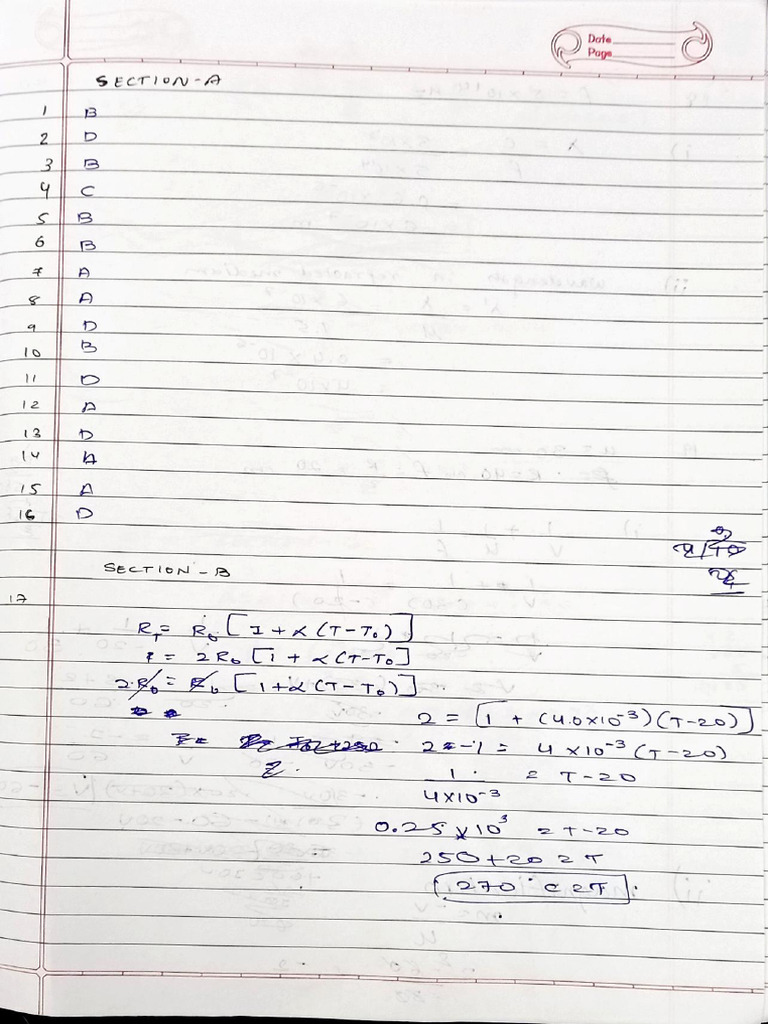 Date
Page
SECTION-A
1 B
2 D
3 B
4 C
5 B
6 B
7 A
8 A
9 D
10 B
11 D
12 A
13 D
14 A
15 A
16 D
SECTION-B
17
R_T = R_0 [1 + α (T-T_0)]
= 2R_0 [1 + α (T-T_0]
2R_0 = R_0 [1+α (T-T_0)]
2 = [1 + (4.0×10^-3) (T-20)]
2-1 = 4×10^-3 (T-20)
1/4×10^-3 = T-20
0.25×10^3 = T-20
250+20 = T
270°C = T